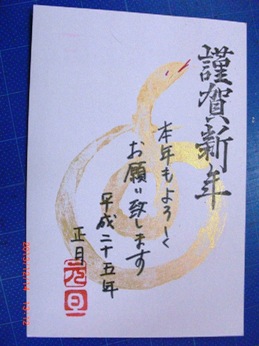 謹賀新年
本年もよろしく
お願い致します
平成二十五年
正月
元旦